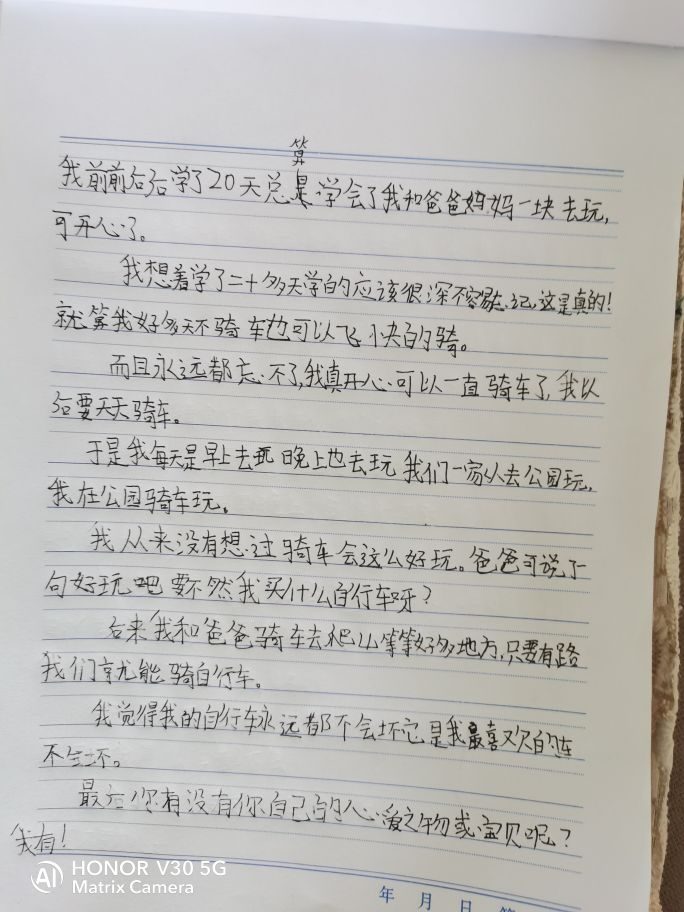 算
我前前后后学了20天总是学会了我和爸爸妈妈一块去玩,
可开心了。
我想着学了二十多天学的应该很深不容易忘记,这是真的!
就算我好多天不骑车也可以飞快的骑。
而且永远都忘不了,我真开心可以一直骑车了,我以
后要天天骑车。
于是我每天是早上去玩晚上也去玩我们一家人去公园玩,
我在公园骑车玩。
我从来没有想过骑车会这么好玩。爸爸可说了
句好玩吧要不然我买什么自行车呀?
后来我和爸爸骑车去爬山等等好多地方,只要有路
我们就能骑自行车。
我觉得我的自行车永远都不会坏它是我最喜欢的
不会坏。
最后你有没有你自己的心爱之物或宝贝呢?
我有!
HONOR V30 5G
Matrix Camera
年 月 日